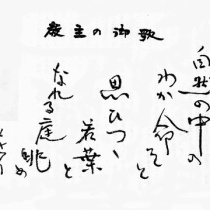 教主の御歌
自然の中の
わか命そと
思ひつゝ
若葉と
なれる庭
眺め